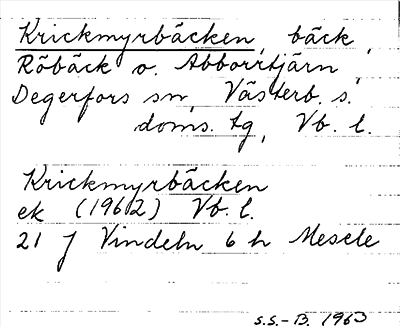 Krickmyrbäcken, bäck,
Röbäck o. Abborrtjärn,
Degerfors sn, Västerb. s.
doms. tg, Vb. l.
Krickmyrbäcken
ek (1962) Vb. l.
21 J Vindeln 6 h Mesele
S.S.-B. 1963